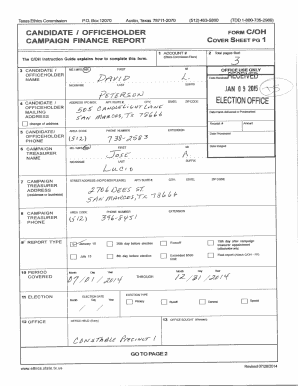 Texas Ethics Commission P.O. Box 12070 Austin, Texas 78711-2070 (512) 463-5800 (TDD 1-800-735-2989)
CANDIDATE / OFFICEHOLDER FORM C/OH
CAMPAIGN FINANCE REPORT COVER SHEET PG 1
The C/OH Instruction Guide explains how to complete this form.
1 ACCOUNT #
2 Total pages filed:
3
3 CANDIDATE / OFFICEHOLDER NAME
FIRST MI
DAVID L
NICKNAME LAST SUFFIX
PETERSON
OFFICE USE ONLY
RECEIVED
JAN 09 2015
ELECTION OFFICE
4 CANDIDATE / OFFICEHOLDER MAILING ADDRESS
change of address
ADDRESS / PO BOX; APT / SUITE #; CITY; STATE; ZIP CODE
505 CANDLELIGHT LANE
SAN MARCOS, TX 78666
5 CANDIDATE / OFFICEHOLDER PHONE
AREA CODE PHONE NUMBER EXTENSION
(512) 738-2583
Receipt # Amount
Date Processed
Date Imaged
6 CAMPAIGN TREASURER NAME
FIRST MI
JOSE A
NICKNAME LAST SUFFIX
LUCIO
7 CAMPAIGN TREASURER ADDRESS
CITY; STATE; ZIP CODE
2706 DEES ST
SAN MARCOS, TX 78666
8 CAMPAIGN TREASURER PHONE
AREA CODE PHONE NUMBER EXTENSION
(512) 396-8451
9 REPORT TYPE
January 15
30th day before election
Runoff
15th day after campaign treasurer appointment (officeholder only)
July 15
8th day before election
Exceeded $500 limit
10 PERIOD COVERED
Month Day Year
07/01/2014 THROUGH 12/31/2014
11 ELECTION
ELECTION DATE
Month Day Year
ELECTION TYPE
Primary Runoff General Special
12 OFFICE
OFFICE HELD (if any)
CONSTABLE PRECINCT 1
13 OFFICE SOUGHT (if known)
GO TO PAGE 2
www.ethics.state.tx.us